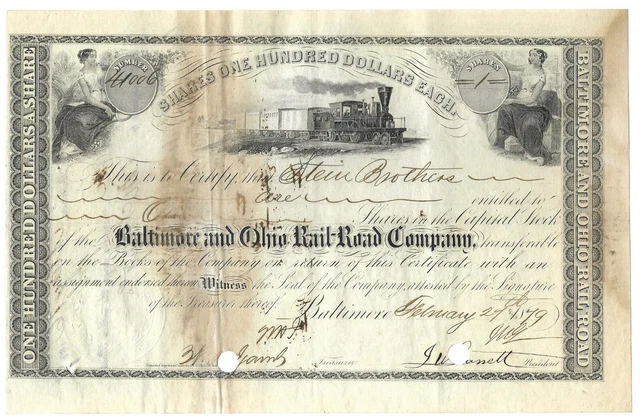 NUMBER
SHARES ONE HUNDRED DOLLARS EACH.
SHARES
41006
-1-
ONE HUNDRED DOLLARS A SHARE
BALTIMORE AND OHIO RAIL-ROAD
This is to Certify, that Stein Brothers
are entitled to
One Shares in the Capital Stock
of the Baltimore and Ohio Rail-Road Company, transferable
on the Books of the Company on return of this Certificate with an
assignment endorsed thereon Witness the Seal of the Company, attested by the Signature
of the Treasurer thereof.
Baltimore February 27th 1879
Treasurer
J W Garrett President